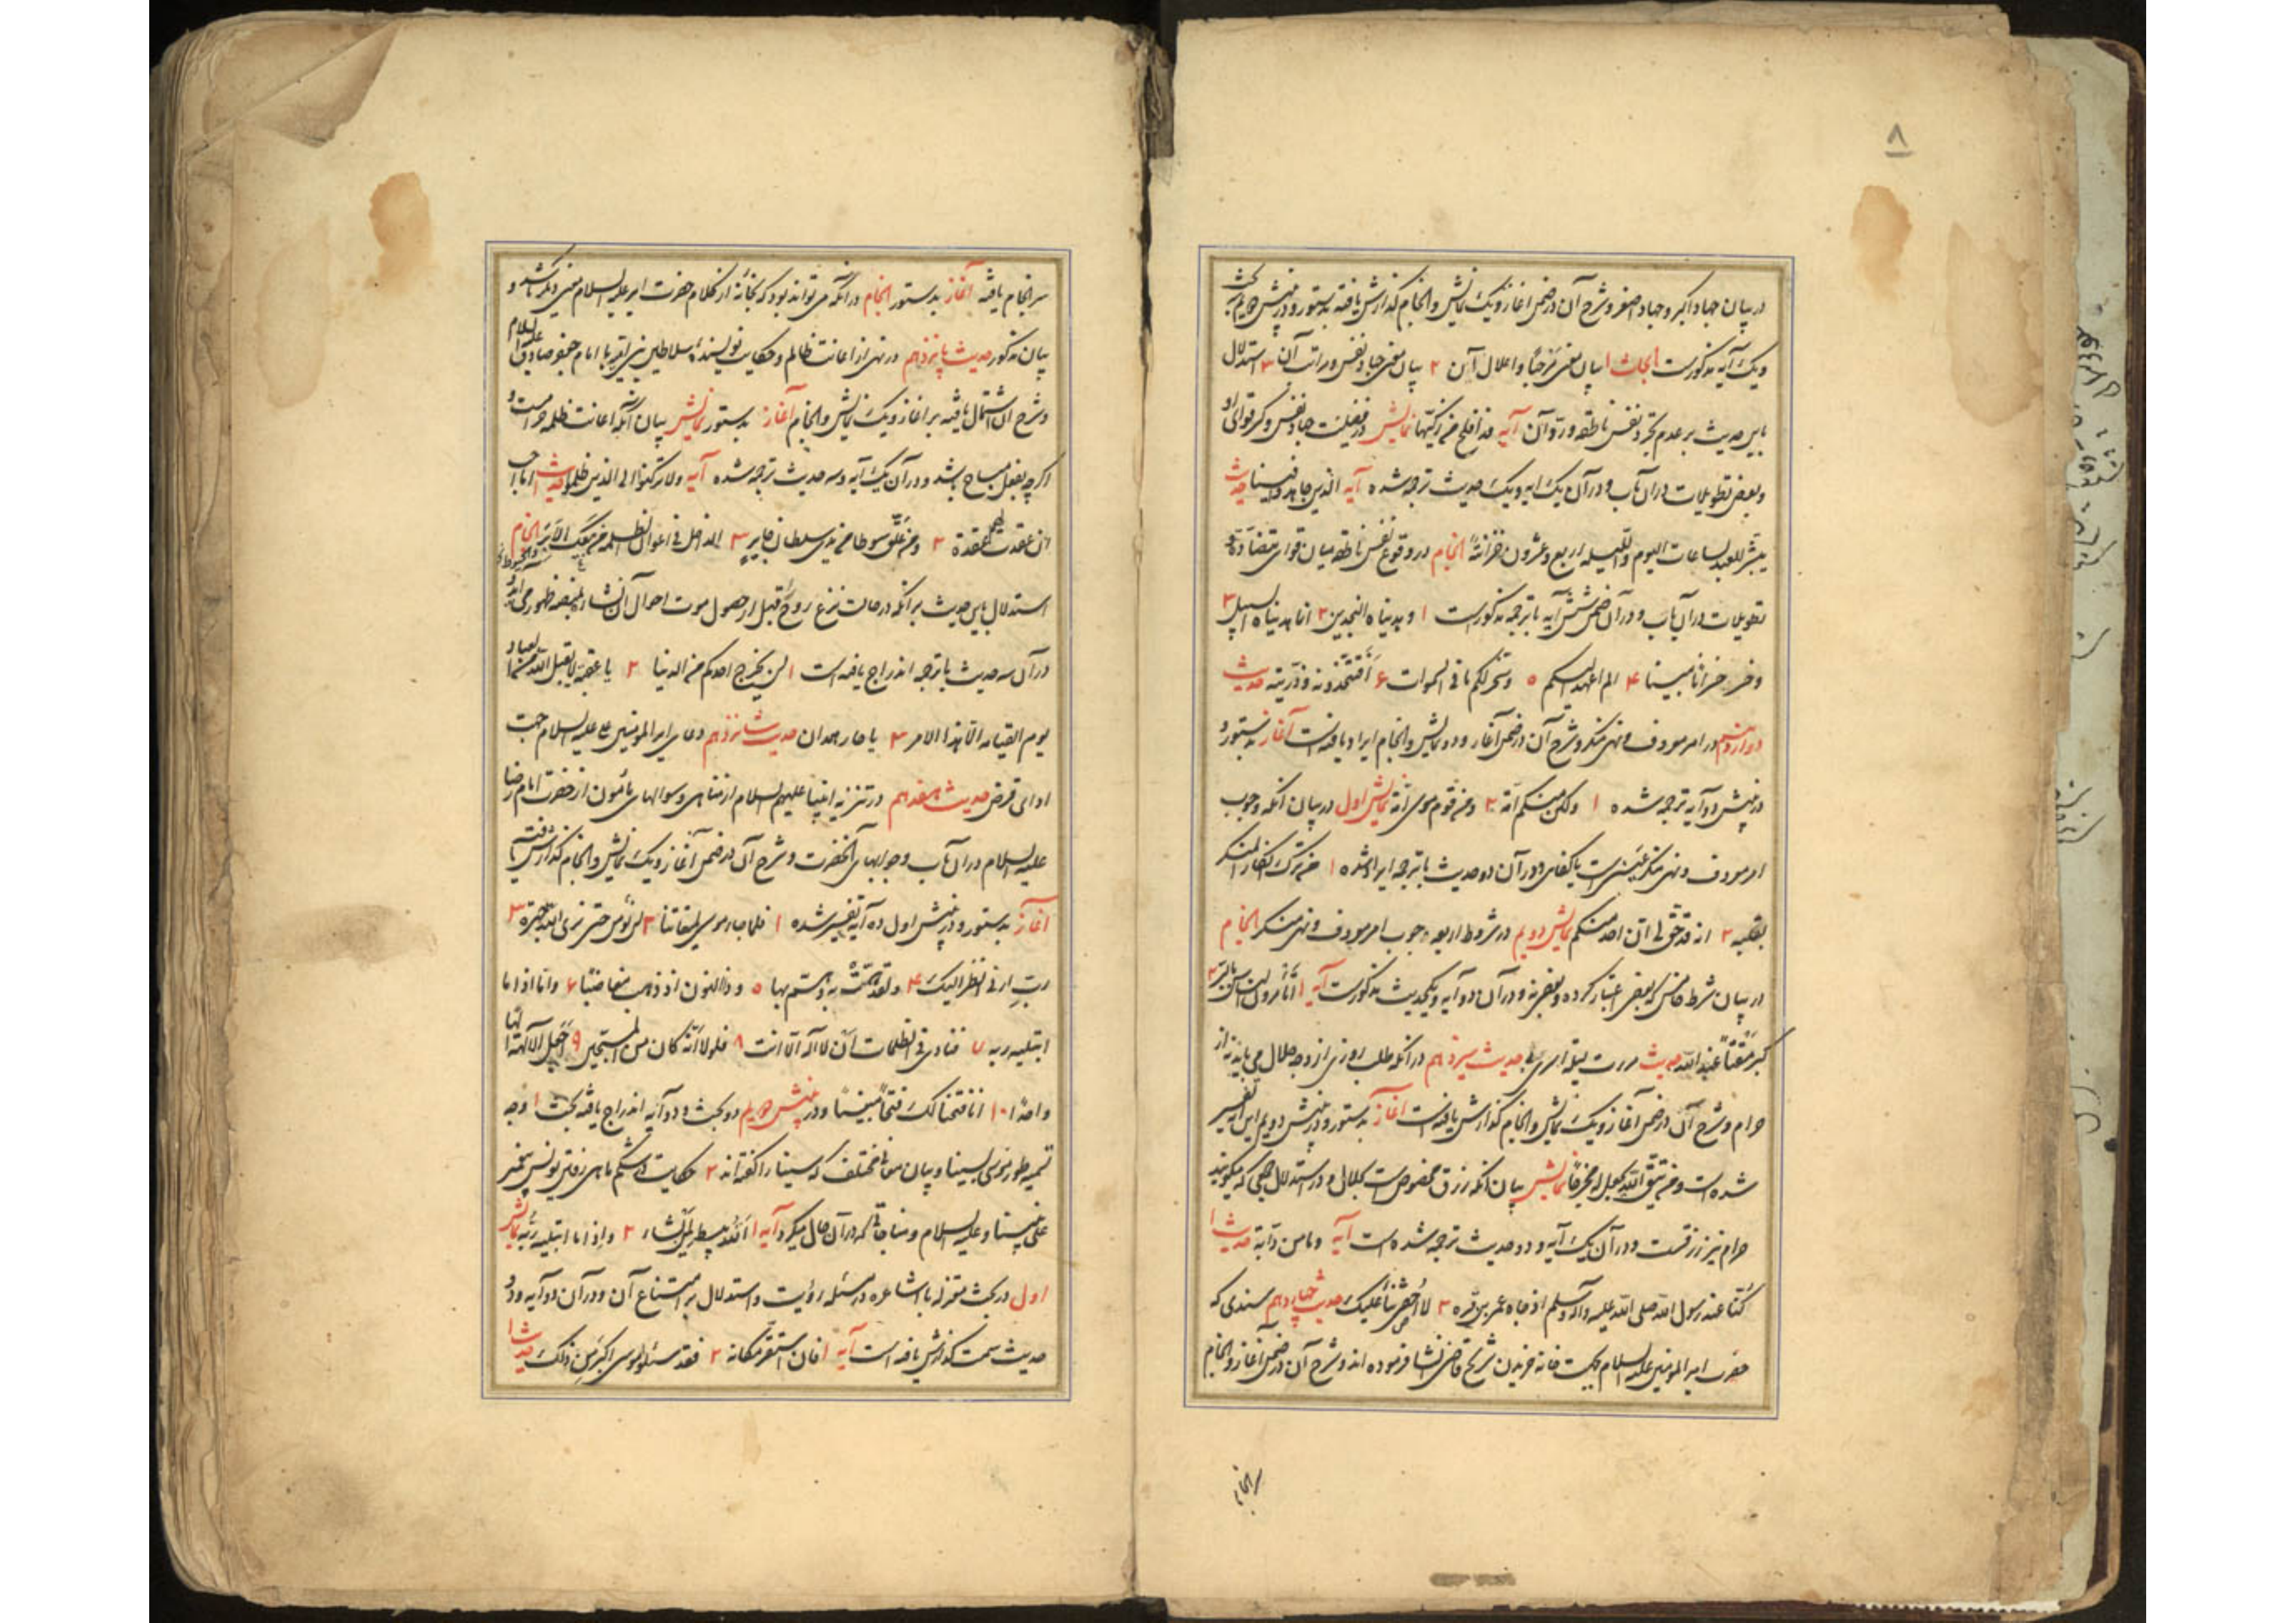 ۸
در بیان جهاد اکبر و جهاد اصغر و شرح آن در ضمن آغاز و یک نمایش و انجام گذارش یافته بدستور و در پنبش جویم سه بحث
و یک آیه مذکورست ابحاث ۱ بیان معنی مرحبا و اعلال آن ۲ بیان معنی جهاد نفس و مراتب آن ۳ استدلال
باین حدیث بر عدم تجرد نفس ناطقه و رد آن آیه قد افلح من زکیها نمایش در فضیلت جهاد نفس و ذکر قوای او
و بعضی تطویلات در آن باب و در آن یک آیه و یک حدیث ترجمه شده آیه الذین جاهدوا فینا حدیث
ینشر للعبد لساعات الیوم و اللیله اربع و عشرون خزانة انجام در وقوع نفس ناطقه میان قوای متضاده و
تطویلات در آن باب و در آن ضمن شش آیه با ترجمه مذکورست ۱ و هدیناه النجدین ۲ انا هدیناه السبیل ۳
و خسر خسرانا مبینا ۴ الم اعهد الیکم ۵ و سخر لکم ما فی السموات ۶ افتتخذونه و ذریته حدیث
دوازدهم در امر معروف و نهی منکر و شرح آن در ضمن آغاز و دو نمایش و انجام ایراد یافته است آغاز بدستور و
در پنبش دو آیه ترجمه شده ۱ ولتکن منکم امة ۲ و من قوم موسی امة نمایش اول در بیان آنکه وجوب
امر معروف و نهی منکر عینی است یا کفائی و در آن دو حدیث با ترجمه ایراد شده ۱ من ترک انکار المنکر
بقلبه ۲ انه قد حق لی ان اخذ منکم نمایش دویم در شروط اربعه وجوب امر معروف و نهی منکر انجام
در بیان شرط خامس که بعضی اعتبار کرده و بعضی نه و در آن دو آیه و یکحدیث مذکورست آیه ۱ أتأمرون الناس بالبر ۲
کبر مقتا عند الله حدیث مررت لیلة اسری بی حدیث سیزدهم در آنکه طلب روزی از وجه حلال می باید نه از
حرام و شرح آن در ضمن آغاز و یک نمایش و انجام گذارش یافته است آغاز بدستور و در پنبش دویم این آیه تفسیر
شده است و من یتق الله یجعل له مخرجا نمایش بیان آنکه رزق مخصوص است بحلال و در استدلال جمعی که میگویند
حرام نیز رزقست و در آن یک آیه و دو حدیث ترجمه شده است آیه و ما من دابة حدیث ۱
کنا عند رسول الله صلی الله علیه و آله و سلم اذ جاء عمر بن قره ۲ لا حدیث چهاردهم سندی که
حضرت امیر المومنین علیه السلام بجهت خانه خریدن شریح قاضی انشا فرموده اند و شرح آن در ضمن آغاز و انجام
سرانجام
سرانجام یافته آغاز بدستور انجام در آنکه می تواند بود که بخانه از کلام حضرت امیر علیه السلام معنی دیگر باشد و
بیان مذکور حدیث پانزدهم در نهی از اعانت ظالم و حکایت نویسنده سلاطین بنی امیه با امام جعفر صادق علیه السلام
و شرح آن اشتمال یافته بر آغاز و یک نمایش و انجام آغاز بدستور نمایش بیان آنکه اعانت ظلمه حرامست و
اگرچه بفعل مباح باشد و در آن یک آیه و سه حدیث ترجمه شده آیه ولا ترکنوا الی الذین ظلموا حدیث ۱ ما احب
ان عقدت لهم عقدة ۲ و من علق سوطا من یدی سلطان جابر ۳ الداخل فی اعوان الظلمه انجام
استدلال باین حدیث بر آنکه در حالت نزع روح قبل از حصول موت احوال آن نشاء بمنصه ظهور می آید و
در آن سه حدیث با ترجمه اندراج یافته است ۱ لن یخرج احدکم من الدنیا ۲ یا عقبه لا یقبل الله من العباد
یوم القیامه الا هذا الامر ۳ یا حار همدان حدیث شانزدهم دعای امیر المؤمنین علیه السلام جهت
ادای قرض حدیث هفدهم در تنزیه انبیا علیهم السلام از مناهی و سوالهای مأمون از حضرت امام رضا
علیه السلام در آن باب و جوابهای آنحضرت و شرح آن در ضمن آغاز و یک نمایش و انجام گذارش یافته
آغاز بدستور و در پنبش اول ده آیه تفسیر شده ۱ فلما جاء موسی لمیقاتنا ۲ لن نؤمن حتی نری الله جهرة ۳
رب ارنی انظر الیک ۴ ولقد همت به و هم بها ۵ و ذا النون اذ ذهب مغاضبا ۶ و اما اذا ما
ابتلیه ربه ۷ فنادی فی الظلمات ان لا اله الا انت ۸ فلولا انه کان من المسبحین ۹ اجعل الالهة الها
واحدا ۱۰ انا فتحنا لک فتحا مبینا و در پنبش جویم دو بحث و دو آیه اندراج یافته بحث ۱ وجه
تسمیه طور موسی بسینا و بیان معانی مختلف که سینا را گفته اند ۲ حکایت در شکم ماهی رفتن یونس پیغمبر
علی نبینا و علیه السلام و مناجاتی که در آن حال میکرد آیه ۱ الله یبسط الرزق لمن یشاء ۲ و اذا ما ابتلیه ربه نمایش
اول در بحث معتزله با اشاعره در مسئله رؤیت و استدلال بر امتناع آن و در آن دو آیه و دو
حدیث سمت گذارش یافته است آیه ۱ فان استقر مکانه ۲ فقد سئلوا موسی اکبر من ذلک حدیث ۱